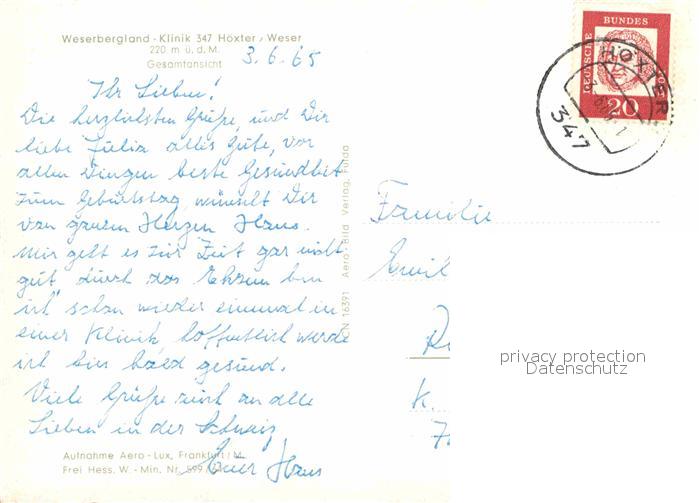 Weserbergland - Klinik 347 Höxter / Weser
220 m ü. d. M.
Gesamtansicht
3.6.65
Ihr Lieben!
Die herzlichsten Grüße, und Dir
liebe Julia alles Gute, vor
allen Dingen beste Gesundheit
zum Geburtstag wünscht Dir
von ganzem Herzen Hans.
Mir geht es zur Zeit gar nicht
gut, durch das bin
ich schon wieder einmal in
einer Klinik, hoffentlich werde
ich hier bald gesund.
Viele Grüße auch an alle
Lieben in der Schweiz
Euer Hans
Aufnahme Aero - Lux, Frankfurt / M.
Frei Hess. W. - Min. Nr.
CN 16391 Aero-Bild Verlag, Fulda
DEUTSCHE BUNDESPOST
20
HÖXTER
347
Familie
Emil
K.
privacy protection
Datenschutz